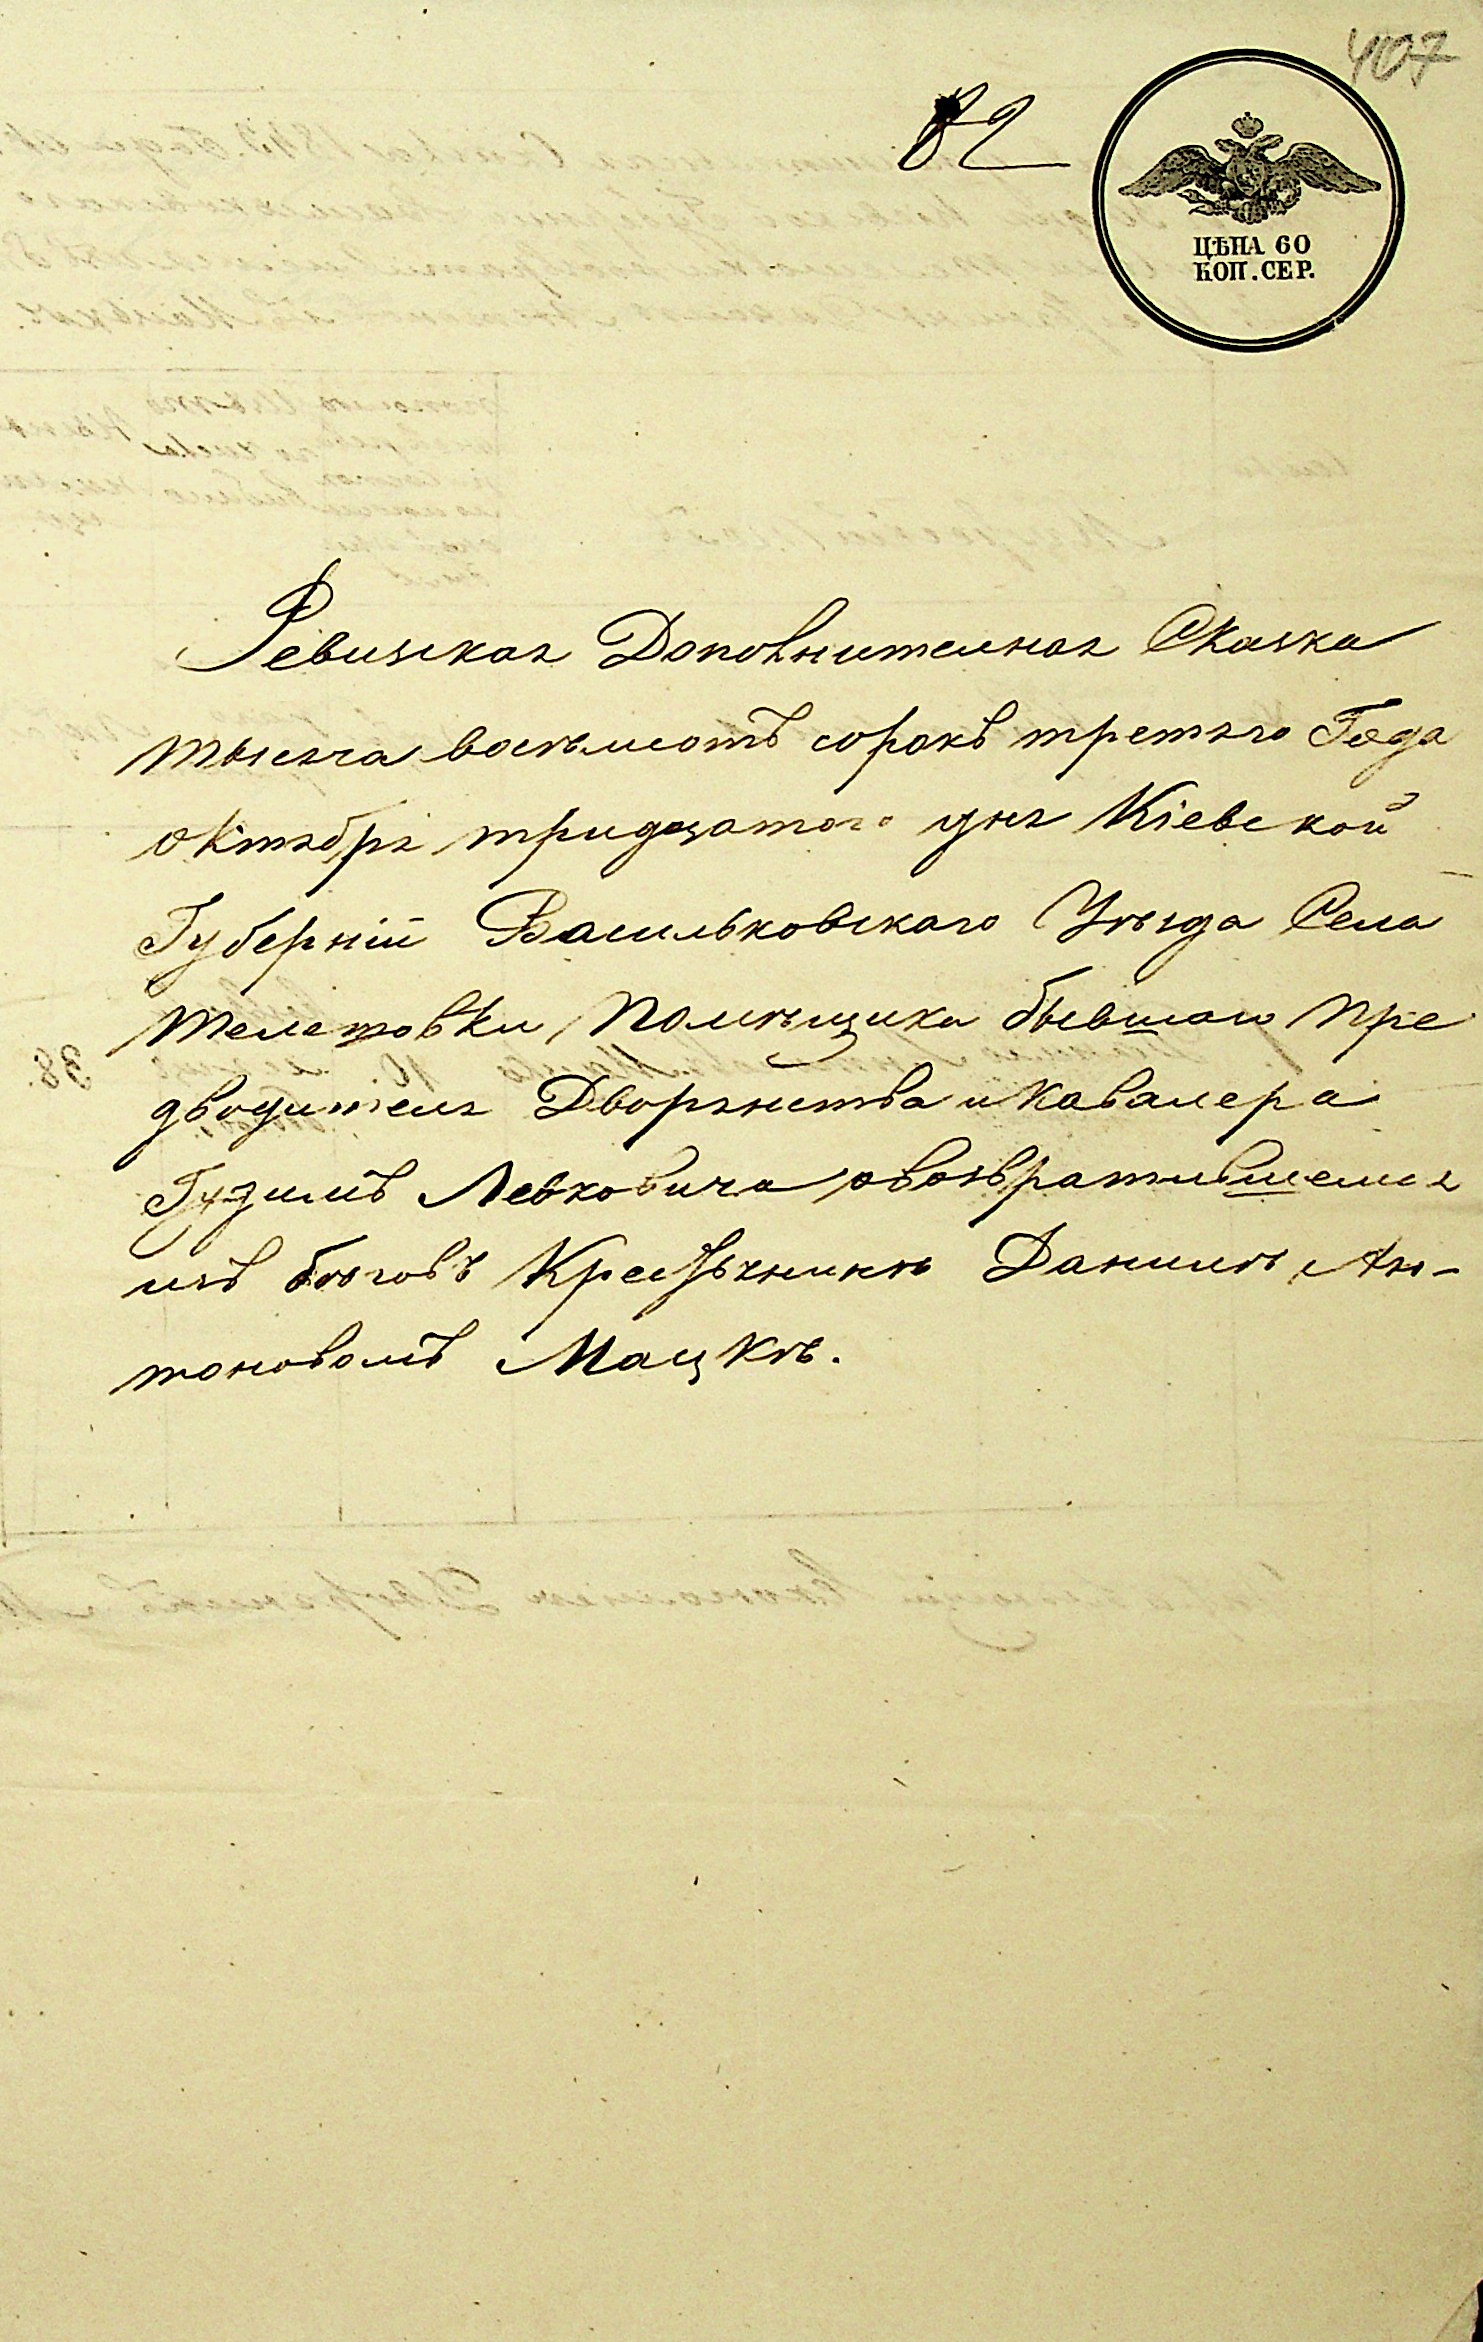 407
82
ЦѢНА 60
КОП. СЕР.
Ревизская Доповнителная Сказка
тысяча восъмсотъ сорокъ третяго Года
октября тридцатого дня Кіевской
Губерніи Васильковскаго Уѣзда Села
Телешовки Помѣщика бывшаго Пре
дводителя Дворянства и Кавалера
Гудимъ Левковича овозвратившемся
изъ бѣговъ Крестьянинѣ Данилѣ Ан-
тоновомъ Мацкѣ.